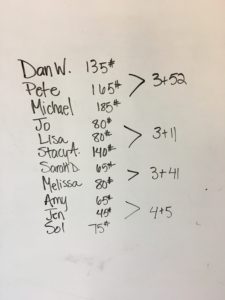 Dan W. 135#
Pete 165# > 3+52
Michael 185#
Jo 80#
Lisa 80# > 3+11
Stacy A. 140#
Sarah D. 65# > 3+41
Melissa 80#
Amy 65#
Jen 45# > 4+5
Sol 75#